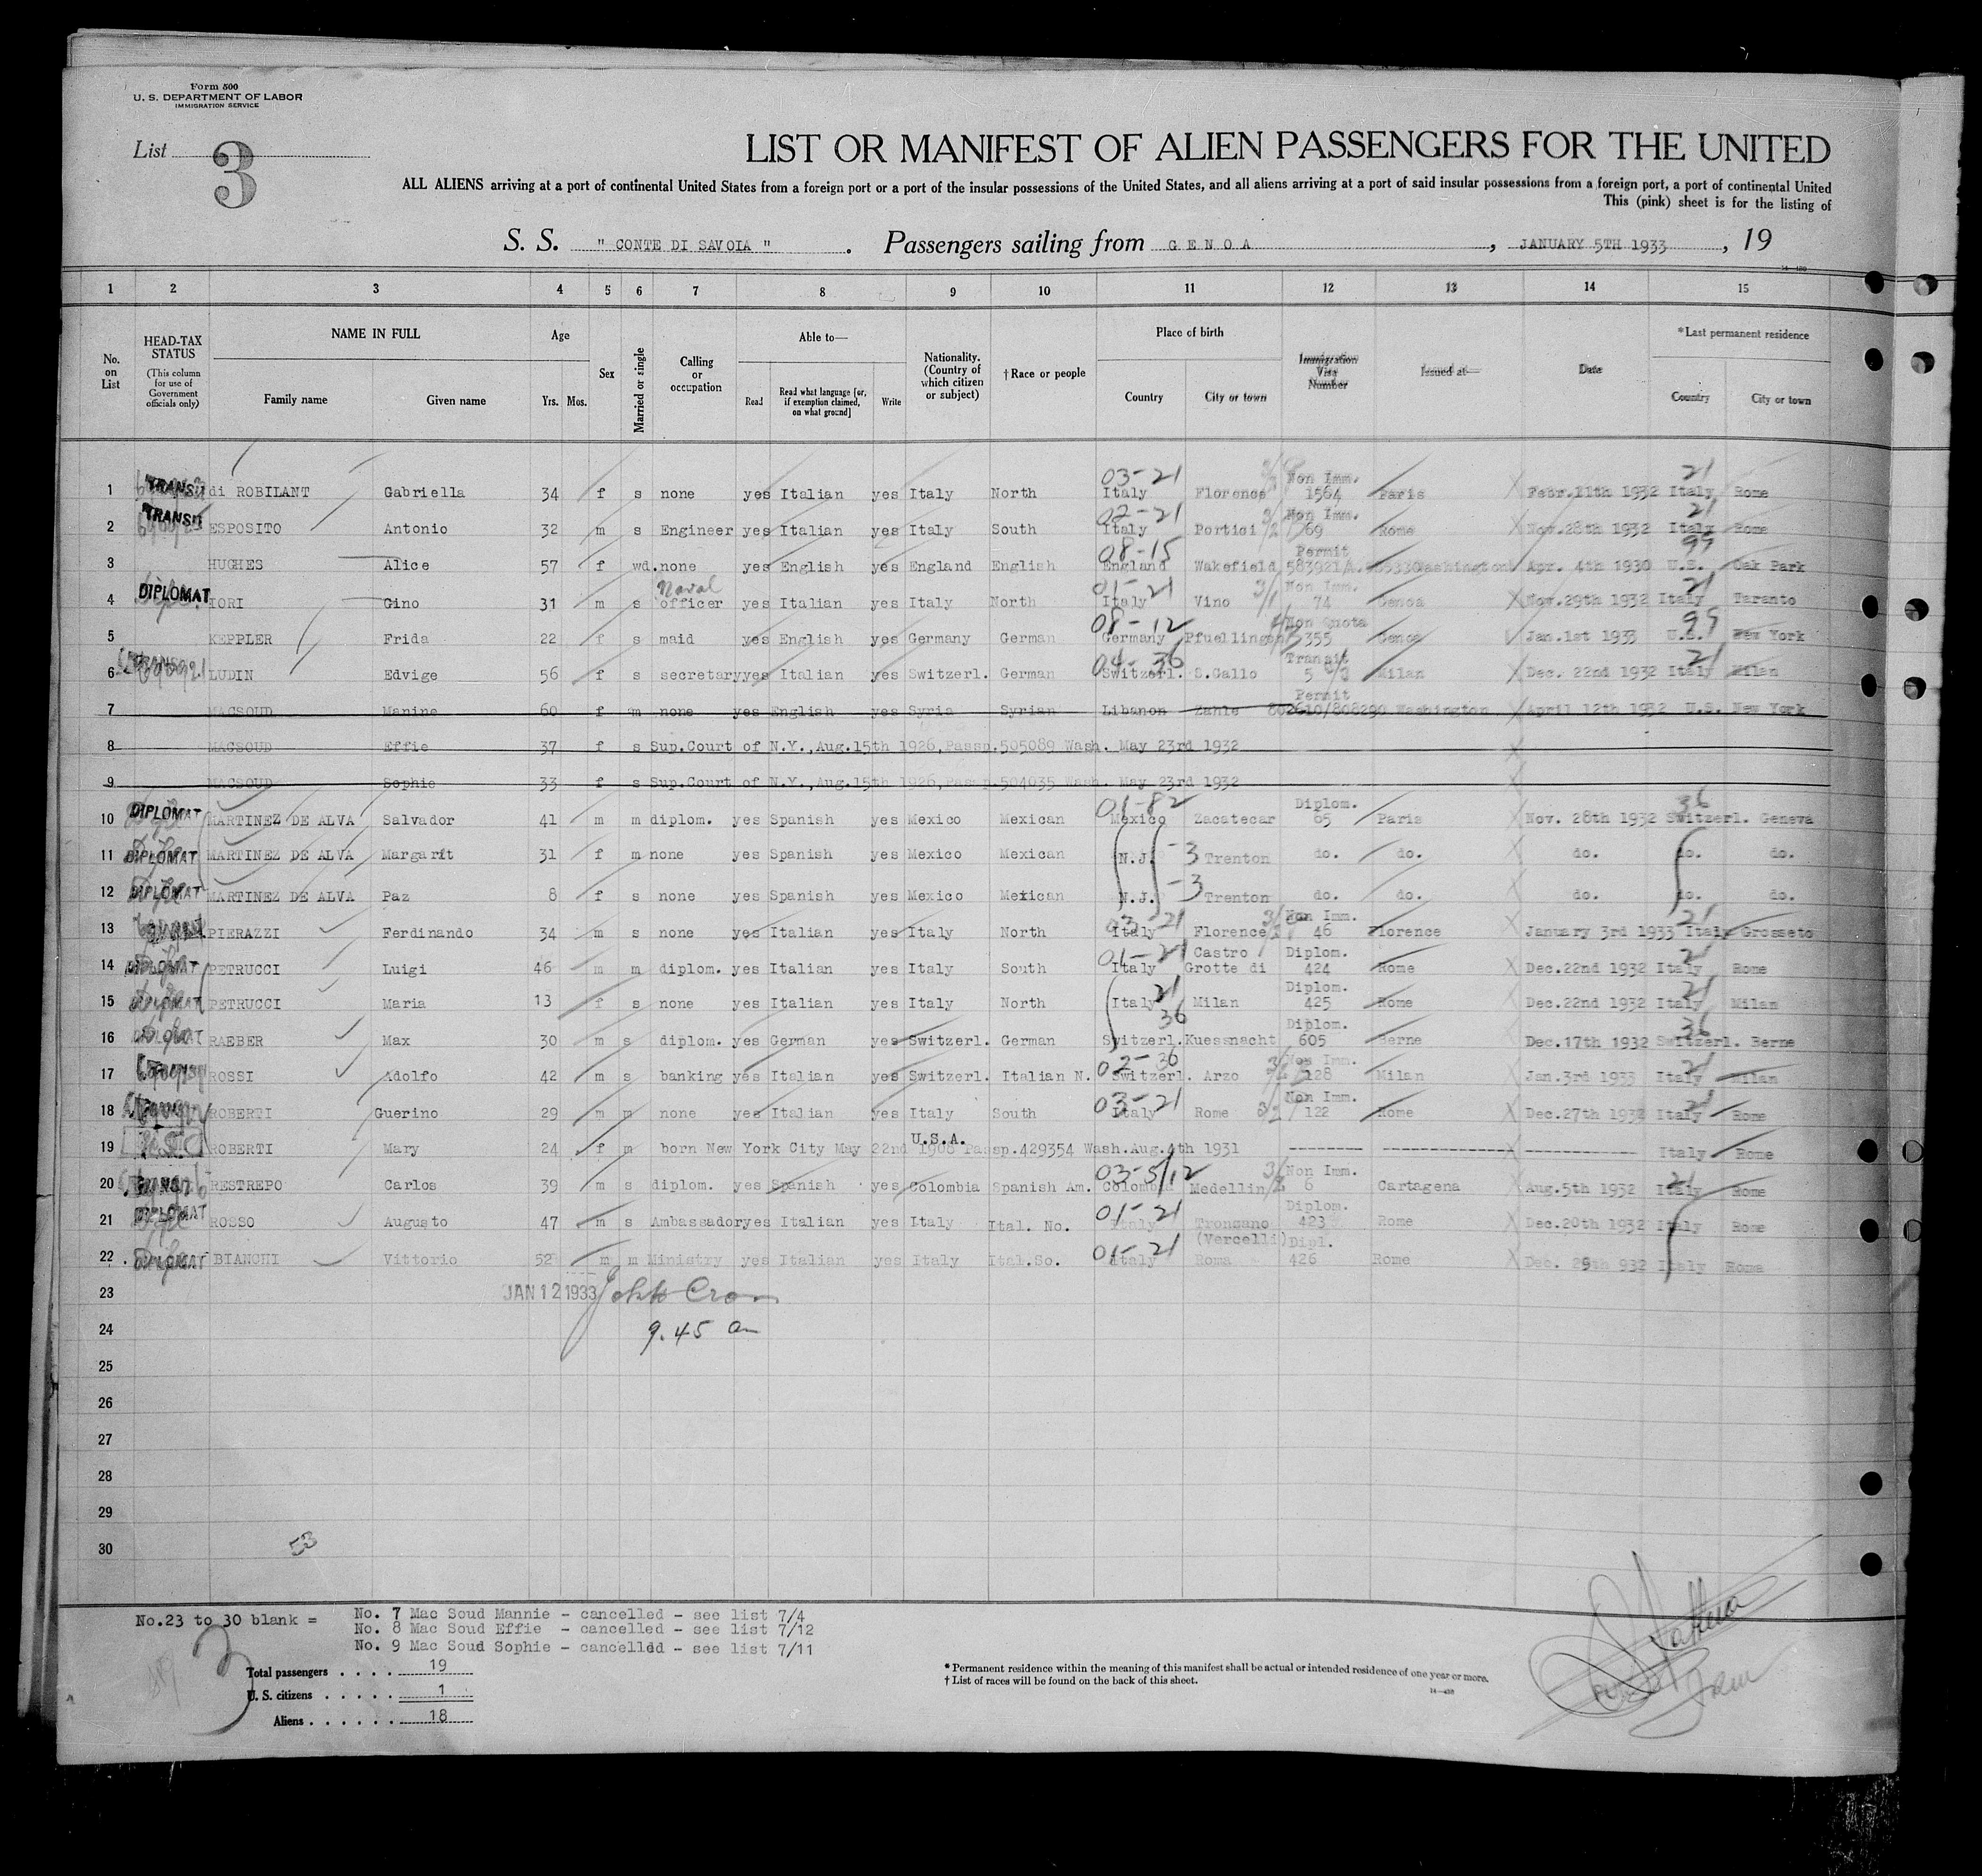 Form 500
U. S. DEPARTMENT OF LABOR
IMMIGRATION SERVICE
List 3
LIST OR MANIFEST OF ALIEN PASSENGERS FOR THE UNITED
ALL ALIENS arriving at a port of continental United States from a foreign port or a port of the insular possessions of the United States, and all aliens arriving at a port of said insular possessions from a foreign port, a port of continental United
This (pink) sheet is for the listing of
S. S. " CONTE DI SAVOIA " . Passengers sailing from GENOA , JANUARY 5TH 1933 , 19
1 2 3 4 5 6 7 8 9 10 11 12 13 14 15
No. on List HEAD-TAX STATUS (This column for use of Government officials only) NAME IN FULL Family name Given name Age Yrs. Mos. Sex Married or single Calling or occupation Able to— Read Read what language [or, if exemption claimed, on what ground] Write Nationality. (Country of which citizen or subject) † Race or people Place of birth Country City or town Immigration Visa Number Issued at— Date *Last permanent residence Country City or town
1 TRANSIT di ROBILANT Gabriella 34 f s none yes Italian yes Italy North 03-21 Italy Florence Non Imm. 1564 Paris Febr.11th 1932 21 Italy Rome
2 TRANSIT ESPOSITO Antonio 32 m s Engineer yes Italian yes Italy South 02-21 Italy Portici Non Imm. 69 Rome Nov.28th 1932 21 Italy Rome
3 HUGHES Alice 57 f wd. none yes English yes England English 08-15 England Wakefield Permit 583921 Washington Apr. 4th 1930 99 U.S. Oak Park
4 DIPLOMAT IORI Gino 31 m s Naval officer yes Italian yes Italy North 01-21 Italy Vino Non Imm. 74 Genoa Nov.29th 1932 21 Italy Taranto
5 KEPPLER Frida 22 f s maid yes English yes Germany German 08-12 Germany Pfuellingen Non Quota 355 Genoa Jan.1st 1933 99 U.S. New York
6 LUDIN Edvige 56 f s secretary yes Italian yes Switzerl. German 04-36 Switzerl. S.Gallo Transit 5 Milan Dec. 22nd 1932 21 Italy Milan
7 MACSOUD Manine 60 f m none yes English yes Syria Syrian Libanon Zahle Permit 802610/808290 Washington April 12th 1932 U.S. New York
8 MACSOUD Effie 37 f s Sup.Court of N.Y.,Aug.15th 1926,Passp.505089 Wash. May 23rd 1932
9 MACSOUD Sophie 33 f s Sup.Court of N.Y.,Aug.15th 1926,Passp.504035 Wash. May 23rd 1932
10 DIPLOMAT MARTINEZ DE ALVA Salvador 41 m m diplom. yes Spanish yes Mexico Mexican 01-82 Mexico Zacatecar Diplom. 65 Paris Nov. 28th 1932 36 Switzerl. Geneva
11 DIPLOMAT MARTINEZ DE ALVA Margarit 31 f m none yes Spanish yes Mexico Mexican N.J. -3 Trenton do. do. do. do. do.
12 DIPLOMAT MARTINEZ DE ALVA Paz 8 f s none yes Spanish yes Mexico Mexican N.J. -3 Trenton do. do. do. do. do.
13 PIERAZZI Ferdinando 34 m s none yes Italian yes Italy North 03-21 Italy Florence Non Imm. 46 Florence January 3rd 1933 21 Italy Grosseto
14 DIPLOMAT PETRUCCI Luigi 46 m m diplom. yes Italian yes Italy South 01-21 Italy Castro Grotte di Diplom. 424 Rome Dec.22nd 1932 21 Italy Rome
15 DIPLOMAT PETRUCCI Maria 13 f s none yes Italian yes Italy North 21 Italy Milan Diplom. 425 Rome Dec.22nd 1932 21 Italy Milan
16 DIPLOMAT RAEBER Max 30 m s diplom. yes German yes Switzerl. German 36 Switzerl. Kuessnacht Diplom. 605 Berne Dec.17th 1932 36 Switzerl. Berne
17 ROSSI Adolfo 42 m s banking yes Italian yes Switzerl. Italian N. 02-36 Switzerl. Arzo Non Imm. 128 Milan Jan.3rd 1933 21 Italy Milan
18 ROBERTI Guerino 29 m m none yes Italian yes Italy South 03-21 Italy Rome Non Imm. 122 Rome Dec.27th 1932 21 Italy Rome
19 ROBERTI Mary 24 f m born New York City May 22nd 1908 U.S.A. Passp.429354 Wash.Aug.4th 1931 Italy Rome
20 RESTREPO Carlos 39 m s diplom. yes Spanish yes Colombia Spanish Am. 03-5/12 Colombia Medellin Non Imm. 6 Cartagena Aug.5th 1932 21 Italy Rome
21 DIPLOMAT ROSSO Augusto 47 m s Ambassador yes Italian yes Italy Ital. No. 01-21 Italy Tronzano (Vercelli) Diplom. 423 Rome Dec.20th 1932 Italy Rome
22 DIPLOMAT BIANCHI Vittorio 52 m m Ministry yes Italian yes Italy Ital.So. 01-21 Italy Roma Dipl. 426 Rome Dec. 29th 932 Italy Rome
23 JAN 12 1933
24 9.45 am
25
26
27
28
29
30
53
No.23 to 30 blank = No. 7 Mac Soud Mannie - cancelled - see list 7/4
No. 8 Mac Soud Effie - cancelled - see list 7/12
No. 9 Mac Soud Sophie - cancelled - see list 7/11
3
Total passengers . . . . 19
U. S. citizens . . . . . 1
Aliens . . . . . . 18
* Permanent residence within the meaning of this manifest shall be actual or intended residence of one year or more.
† List of races will be found on the back of this sheet.